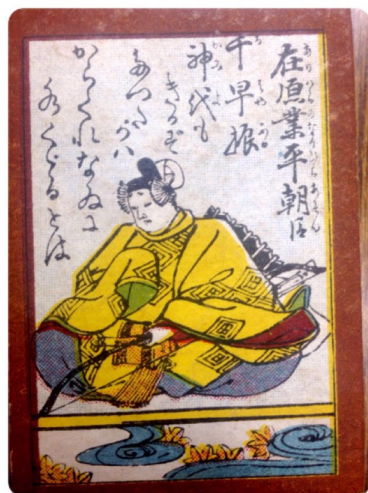 在原業平朝臣
千早振
神代も
きかず
たつたがハ
からくれなゐに
水くぐるとは